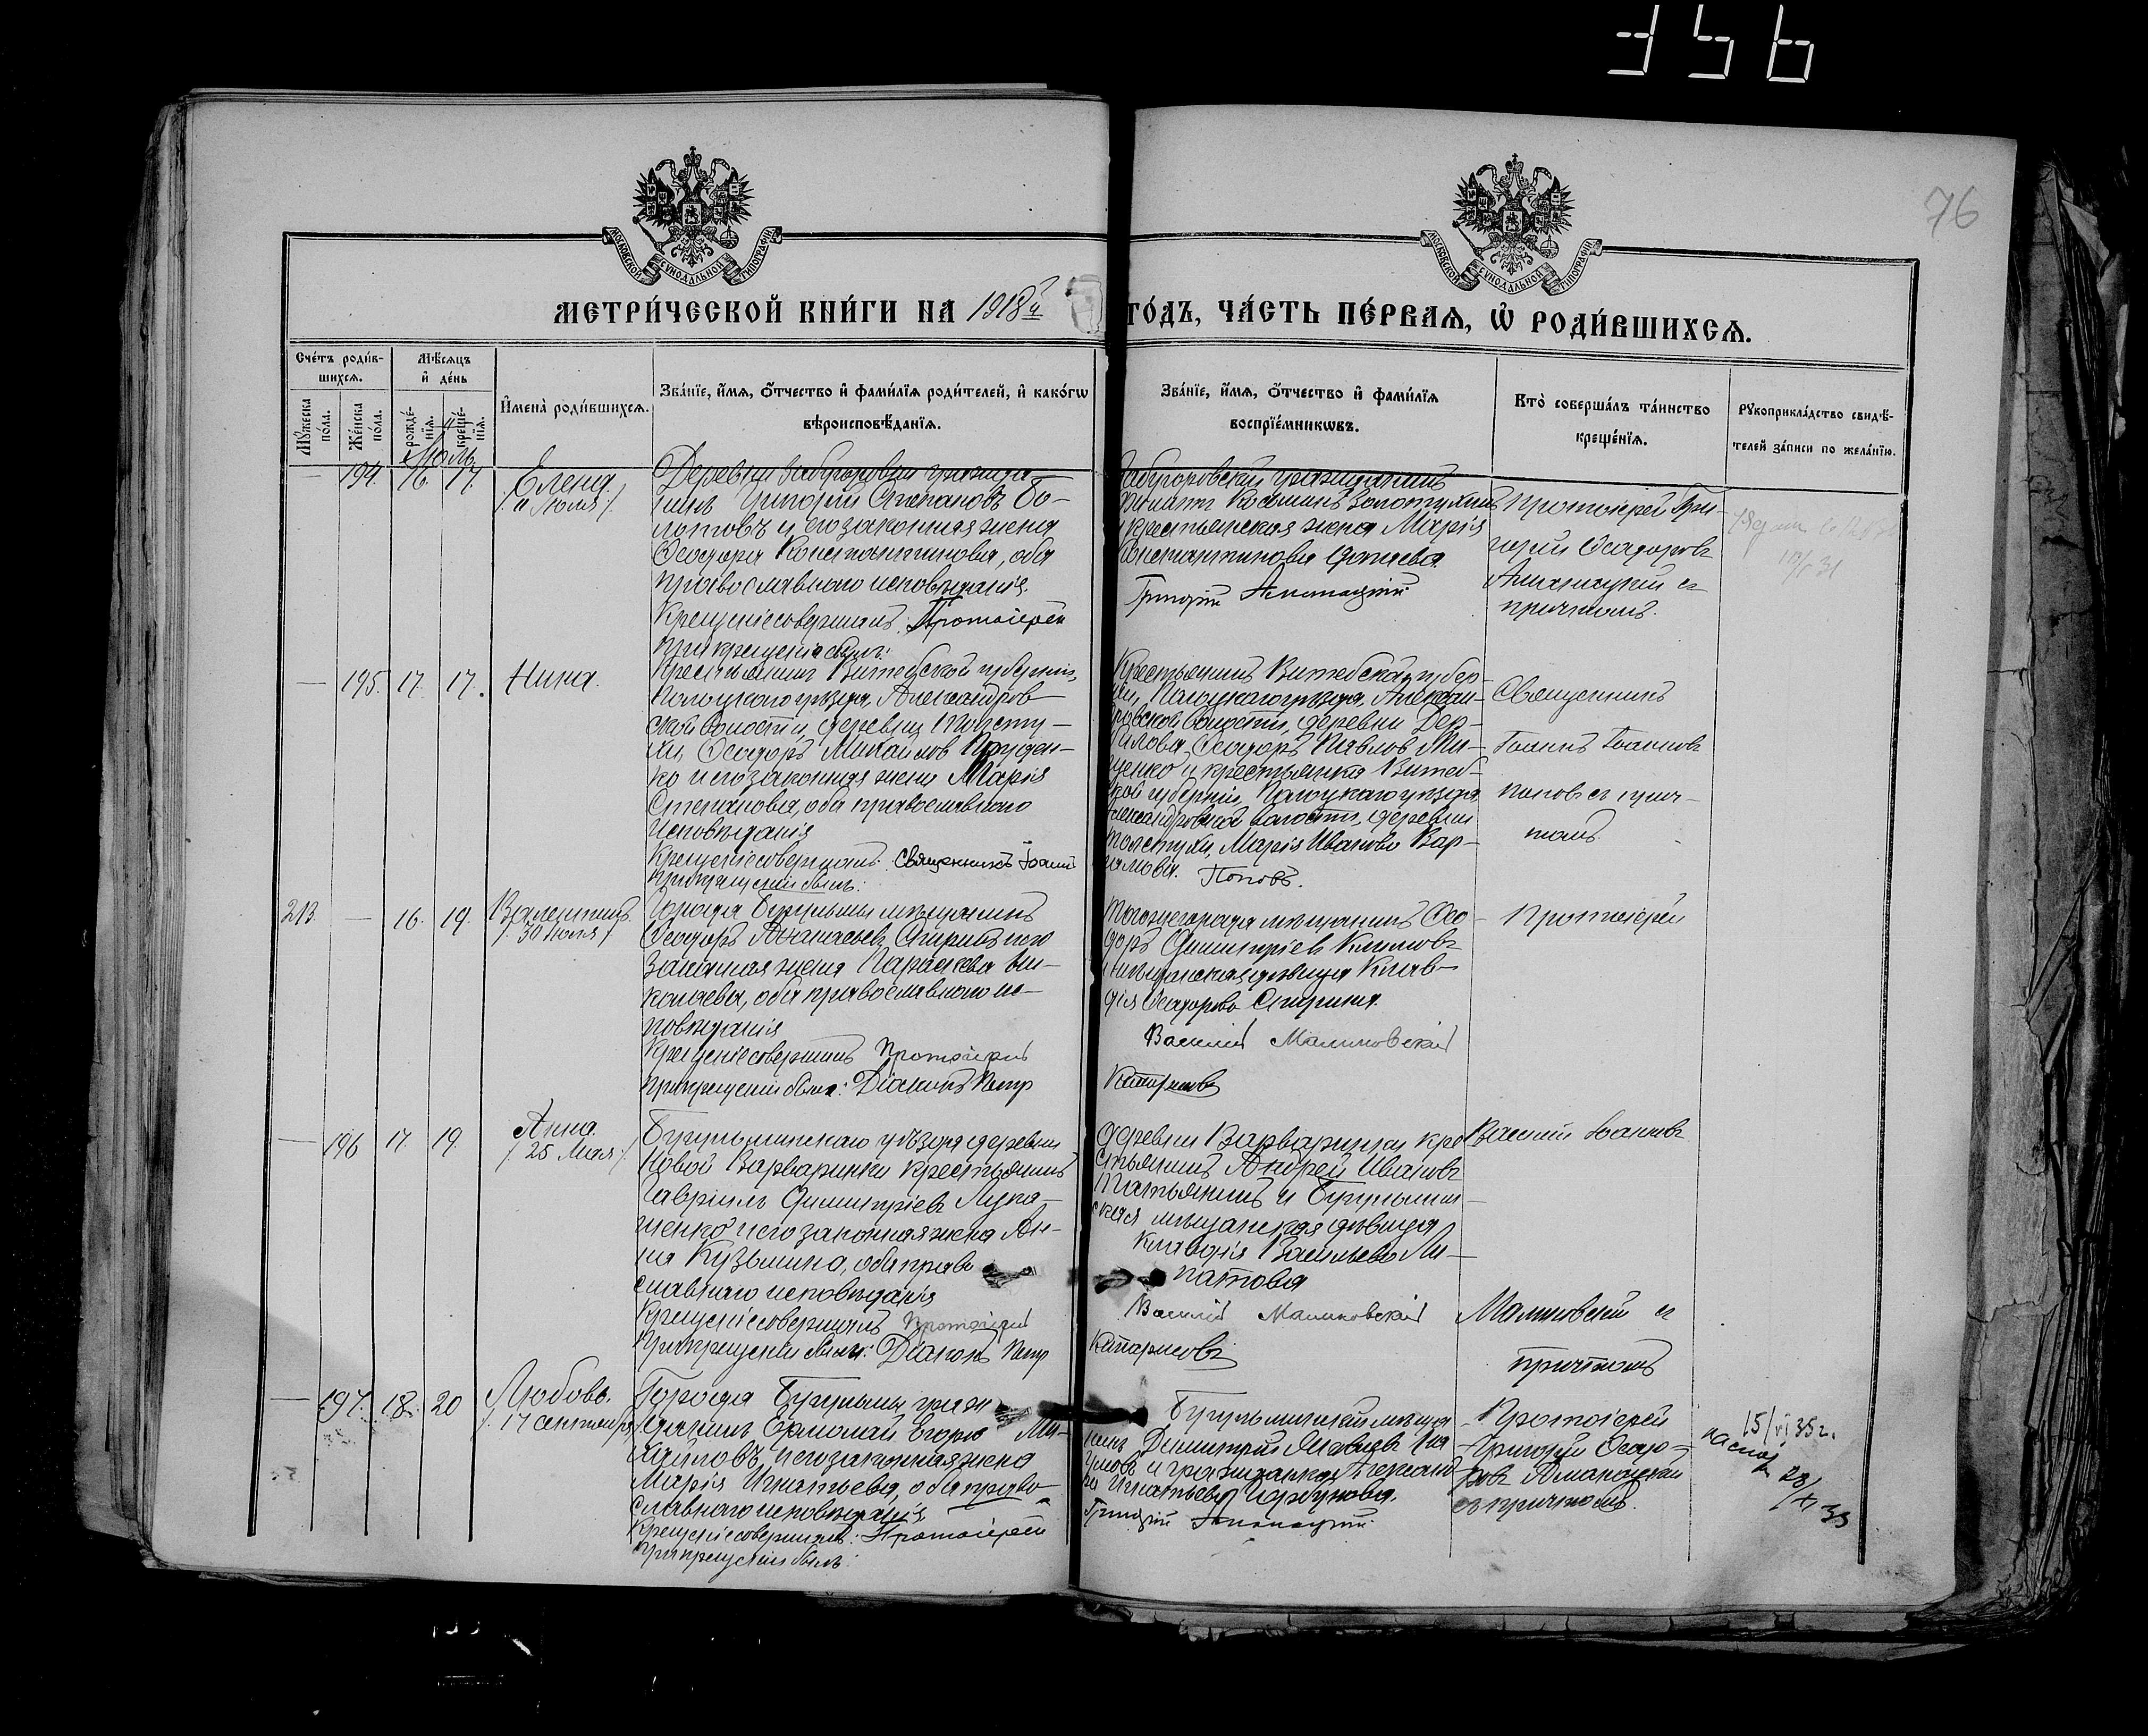 356
76
МОСКОВСКОЙ СѴНОДАЛЬНОЙ ТИПОГРАФІИ
МОСКОВСКОЙ СѴНОДАЛЬНОЙ ТИПОГРАФІИ
МЕТРИ́ЧЕСКОЙ КНИ́ГИ НА 1918й ГО́ДЪ, ЧА́СТЬ ПЕ́РВАѦ, Ѡ РОДИ́ВШИХСѦ.
Сче́тъ роди́в-
шихсѧ.
Мѣ́сѧцъ
и҆ де́нь
Мꙋ́жеска
по́ла.
Же́нска
по́ла.
рожде́-
нїѧ.
креще́-
нїѧ.
И҆мена̀ роди́вшихсѧ.
Зва́нїе, и҆́мѧ, ѻ҆́тчество и҆ фами́лїѧ роди́телей, и҆ како́гѡ
вѣроисповѣ́данїѧ.
Зва́нїе, и҆́мѧ, ѻ҆́тчество и҆ фами́лїѧ
воспрїе́мникѡвъ.
Кто̀ соверша́лъ та́инство
креще́нїѧ.
Рꙋкоприкла́дство свидѣ́-
телей за́писи по жела́нїю.
Июль
— 194. 16. 17.
Елена
/11 Июля/
Деревни
нинъ Григорій Степановъ Бо-
лотовъ и его законная жена
Ѳеодора Константинова, оба
православнаго исповѣданія.
Крещеніе совершилъ: Протоіерей
При крещеніи былъ:
Козьминъ Золотухинъ
и крестьянская жена Марія
Константинова
Григорій
Протоіерей Гри-
горій Ѳеодоровъ
съ
причтомъ.
— 195. 17. 17.
Нина.
Крестьянинъ Витебской губерніи,
Полоцкаго уѣзда, Александров-
ской волости, деревни Толсту-
хи, Ѳеодоръ Михайловъ Пруден-
ко и его законная жена Марія
Степанова, оба православнаго
исповѣданія
Крещеніе совершилъ: Священникъ Іоаннъ
При крещеніи былъ:
Крестьянинъ Витебской губер-
ніи, Полоцкаго уѣзда, Алексан-
дровской волости, деревни Дер-
нилова, Ѳеодоръ Павлов Ми-
щенко и крестьянка Витеб-
ской губерніи, Полоцкаго уѣзда
Александровской волости, деревни
Толстухи, Марія Иванова Вар-
ламова. Поповъ.
Священникъ
Іоаннъ Іоанновъ
Поповъ съ прич-
томъ.
213. — 16. 19.
Валентинъ.
/30 Июля/
Города Бугульмы мѣщанинъ
Ѳеодоръ Аѳанасьевъ Спиринъ и его
законная жена Параскева Ни-
колаева, оба православнаго ис-
повѣданія
Крещеніе совершилъ Протоіерей
При крещеніи былъ: Діаконъ Петр
Того же города мѣщанинъ Ѳео-
доръ Димитріевъ Климовъ
и мѣщанская дѣвица Клав-
дія Ѳеодорова Спирина.
Василій Малиновскій
Кипарисовъ
Протоіерей
— 196 17 19.
Анна.
/25 Мая/
Бугульминскаго уѣзда деревни
Новой Варваринки крестьянинъ
Гавріилъ Димитріевъ Лука-
шенко и его законная жена Ан-
на Кузьмина, оба право
славнаго исповѣданія
Крещеніе совершилъ Протоіерей
При крещеніи былъ: Діаконъ Петр
деревни Варваринки кре
стьянинъ Андрей Ивановъ
Татьянинъ и Бугульмин-
ская мѣщанская дѣвица
Клавдія Васильева Ли-
патова
Василій Малиновскій
Кипарисовъ
Василій Іоанновъ
Малиновскій съ
причтомъ
— 197. 18. 20
Любовь.
/17 сентября/
Города Бугульмы граж
данинъ Ермолай Егоров Ми-
хайловъ, и его законная жена
Марія Игнатьева, оба право-
славнаго исповѣданія
Крещеніе совершилъ: Протоіерей
При крещеніи былъ:
Бугульминскій мѣща
нинъ Димитрій Яковлевъ На
умовъ и гражданка
Игнатьева Горбунова.
Григорій
Протоіерей
Григорій Ѳеодо-
ровъ
съ причтомъ.
15/VI 35 г.